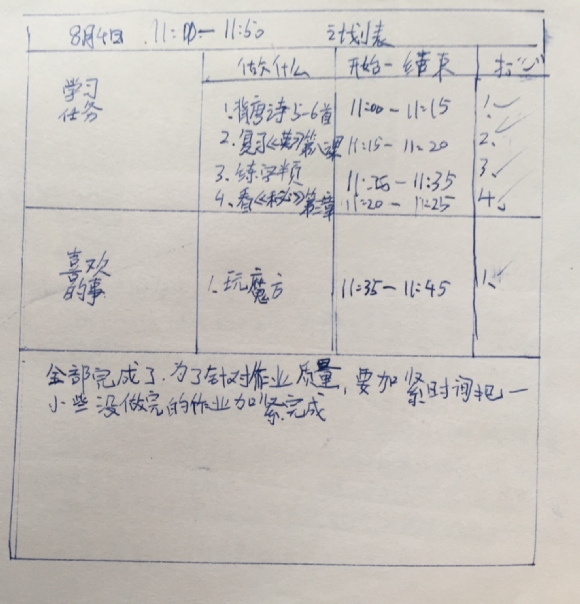 8月4日 11:00-11:50 计划表
做什么 开始-结束 打
学习
任务
1.背唐诗5-6首 11:00-11:15 1.✓
2.复习《英》第八课 11:15-11:20 2.✓
3.练字半页 11:25-11:35 3.✓
4.看《秘》第三章 11:20-11:25 4.✓
喜欢
的事
1.玩魔方 11:35-11:45 1.✓
全部完成了,为了针对作业质量,要加紧时间把一
小些没做完的作业加紧完成